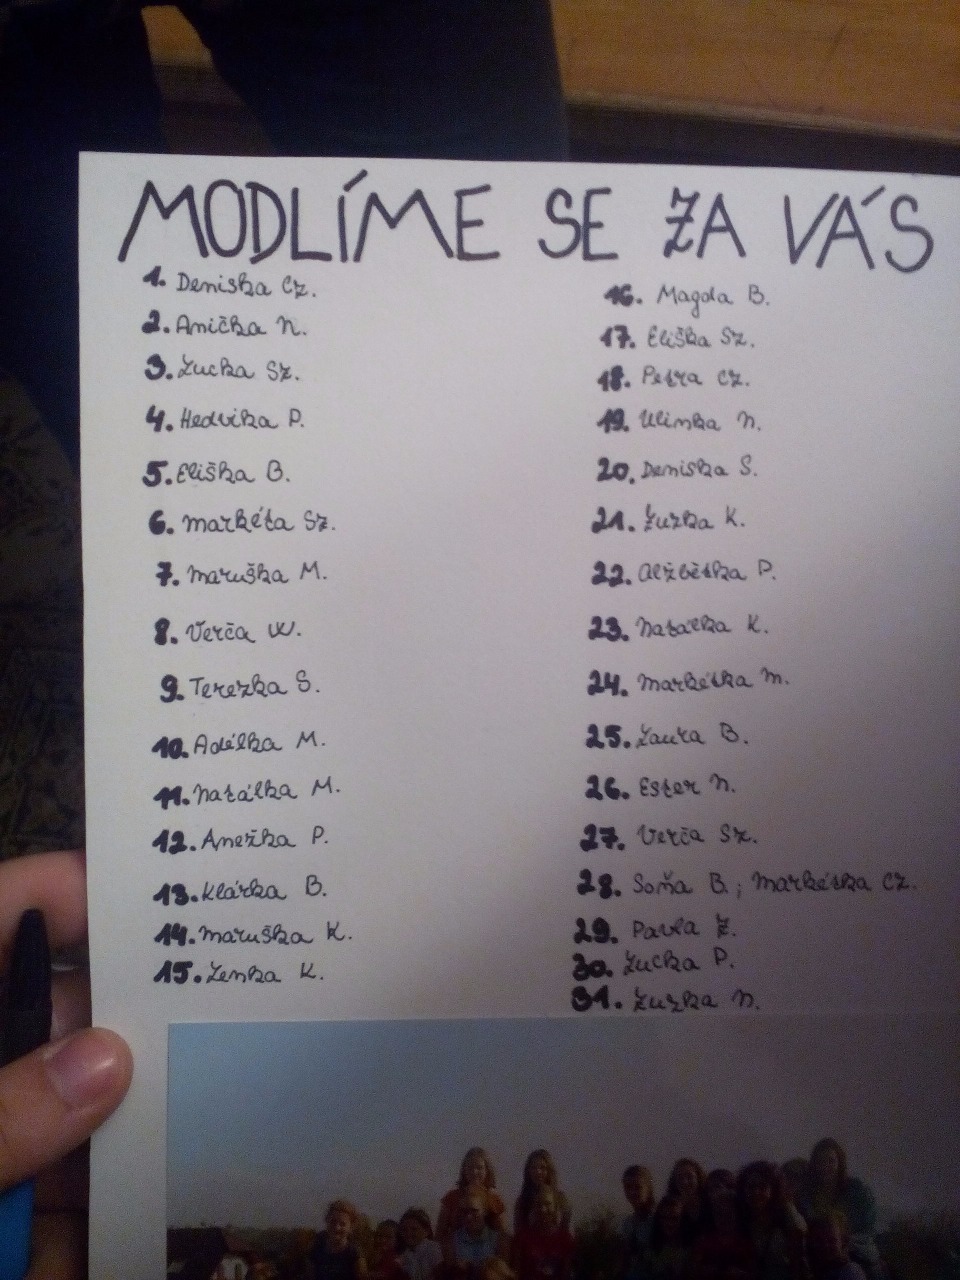 MODLÍME SE ZA VÁS
1. Deniska Cz.
2. Anička N.
3. Lucka Sz.
4. Hedvika P.
5. Eliška B.
6. Markéta Sz.
7. Maruška M.
8. Verča W.
9. Terezka S.
10. Adélka M.
11. Natálka M.
12. Anežka P.
13. Klárka B.
14. Maruška K.
15. Lenka K.
16. Magda B.
17. Eliška Sz.
18. Petra Cz.
19. Ulinka N.
20. Deniska S.
21. Zuzka K.
22. Alžbětka P.
23. Natálka K.
24. Markétka M.
25. Laura B.
26. Ester N.
27. Verča Sz.
28. Soňa B.; Markétka Cz.
29. Pavla Z.
30. Lucka P.
31. Zuzka N.